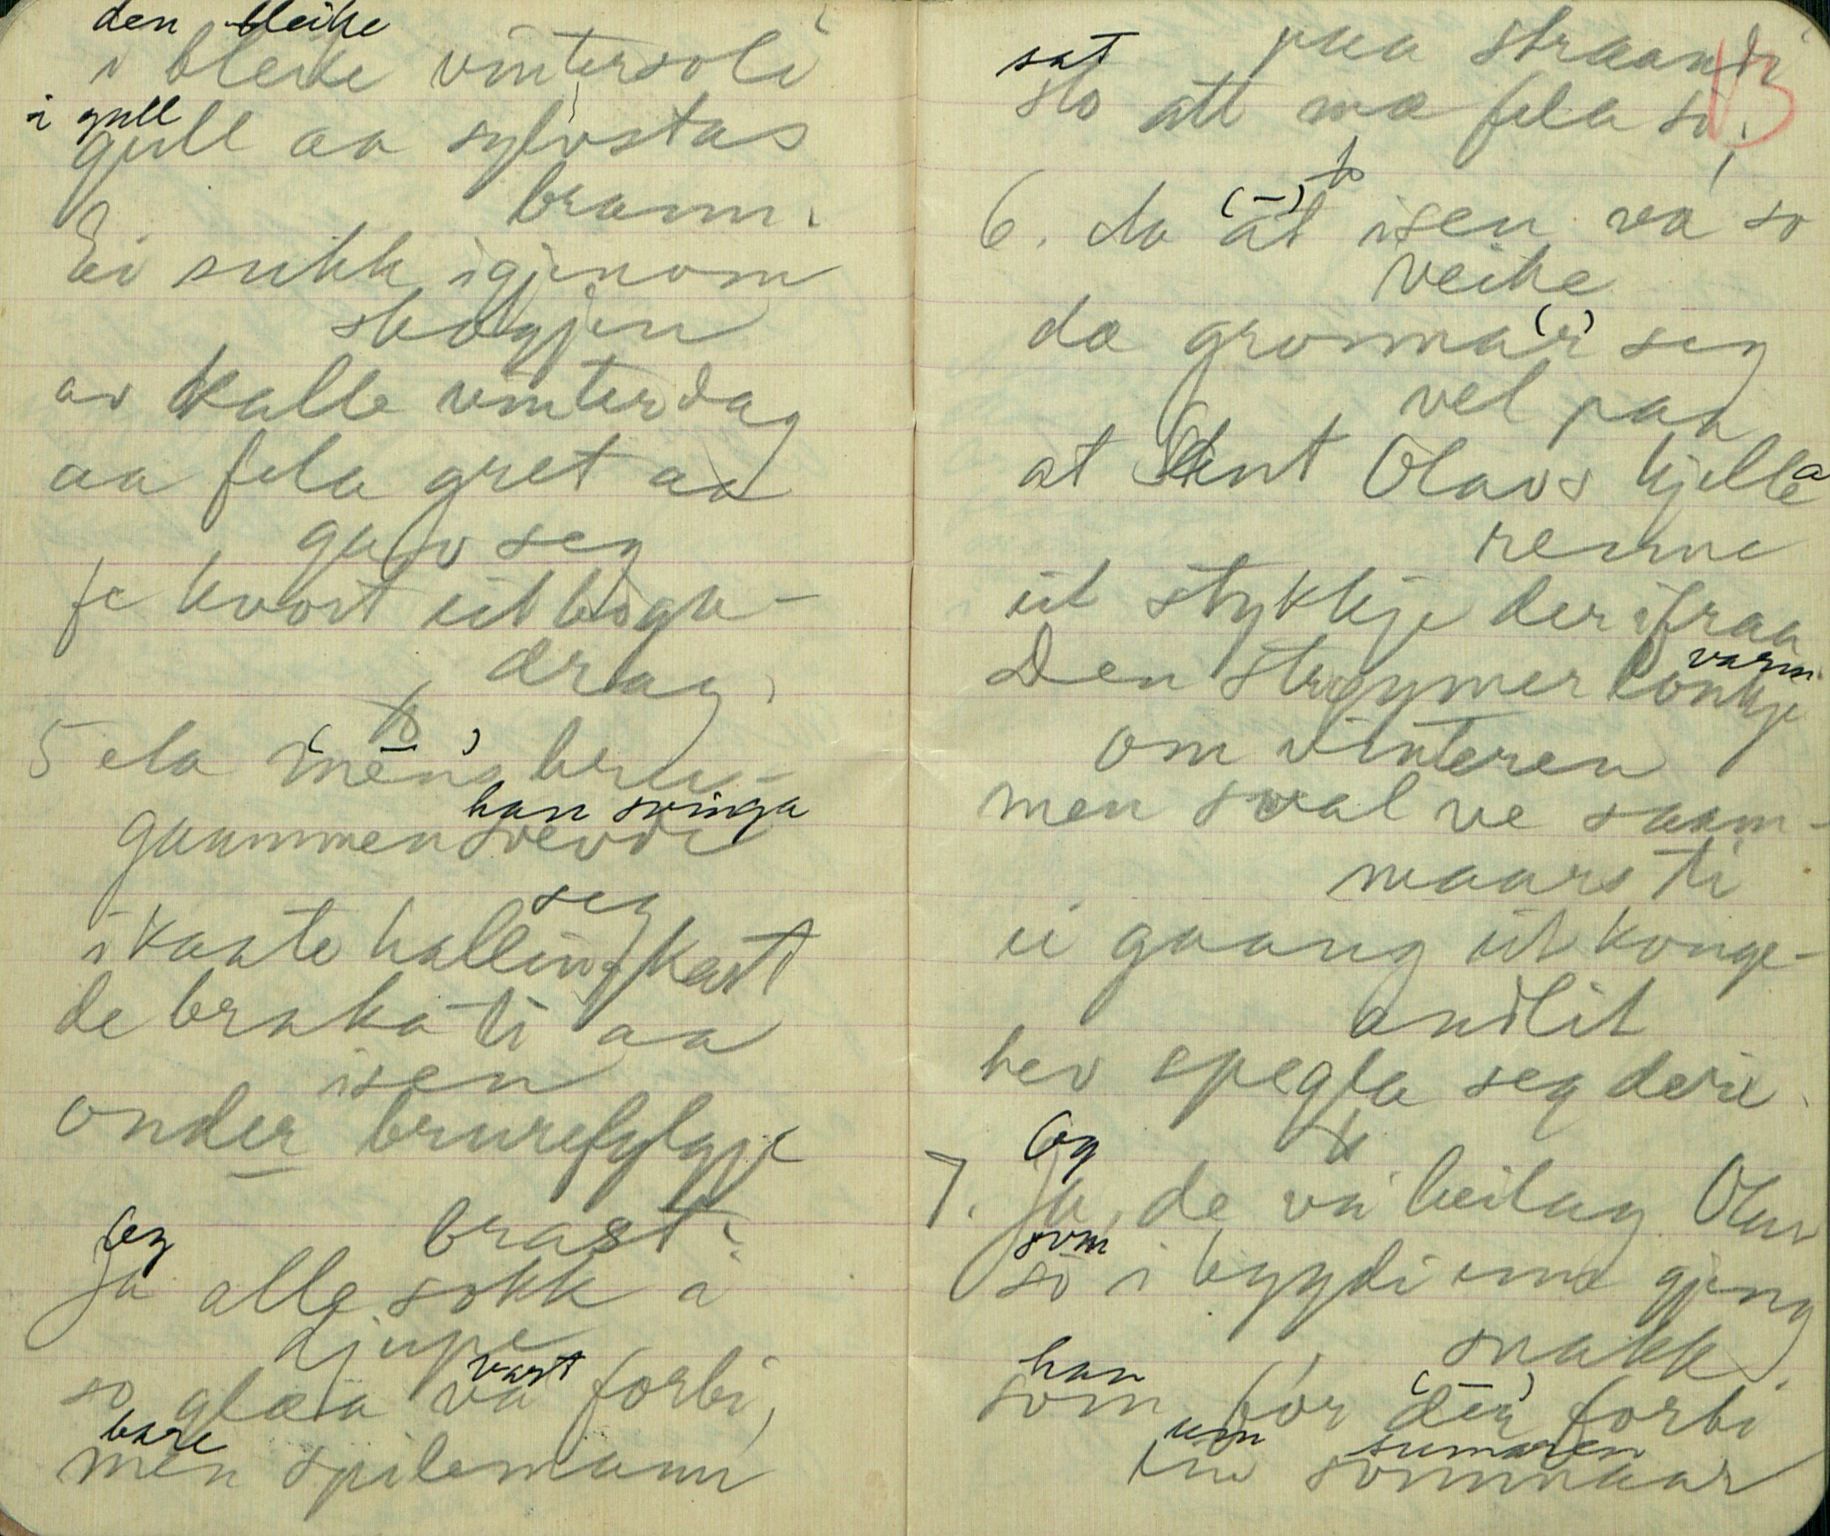 den bleike
i bleike vintersoli
i gull
gull aa sylvstas
brann.
Ei sukk igjenom
skogjen
av kalle vinterdag
aa fela gret aa
gav seg
fe kvort eit boga-
drag,
5 ela mens bru-
han svinga
gaammen svevde
seg
i kaate hallingkast
de braka ti aa
isen
onder brurefylgje
brast.
Og
Ja alle sokk i
djupe
vart
so glæa va forbi,
bare
men spilemann
paa straandi
13
sat
sto att mæ fela si,
6. da at isen va so
veike
da gronna(r) seg
vel paa
at Sant Olavs kjella
renne
eit stykkje der ifraa
varm
Den strøymer
om vinteren
men sval ve saam-
maars ti
ei gaang eit konge-
andlit
hev spegla seg deri.
Og
7. Ja, de va heilag Olav
som
so i bygdi une gjeng
snakk,
han
som for der forbi
um sumaren
ein sommaar